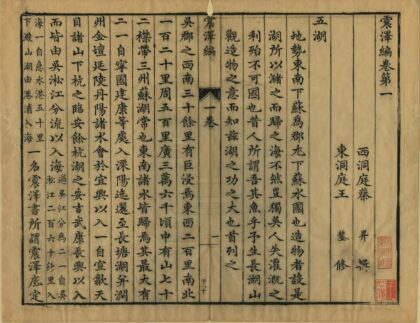 震澤編卷第一
西洞庭蔡 昇 撰
東洞庭王 鏊 修
五湖
地勢東南下蘇爲郡尤下蘇水國也造物者設是
湖所以瀦之而歸之海不然豈獨吳人失灌溉之
利殆不可國也昔人所謂吾其魚乎予生長湖山
觀造物之意而知茲湖之功之大也首列之
震澤編 一卷 一
吳郡之西南三十餘里有巨浸焉東西二百里南北
一百二十里周五百里廣三萬六千頃中有山七十
二襟帶三州蘇湖常也東南諸水皆歸焉其最大有
二一自寧國建康等處入溧陽迤邐至長塘湖并潤
州金壇延陵丹陽諸水會於宜興以入一自宣歙天
目諸山下杭之臨安餘杭湖之安吉武康長興以入
而皆由吳淞江分流以入海過吳江分爲二一自吳淞江二百六十餘里入
海一自急水港五十里下澱山湖由港浦入海一名震澤書所謂震澤底定